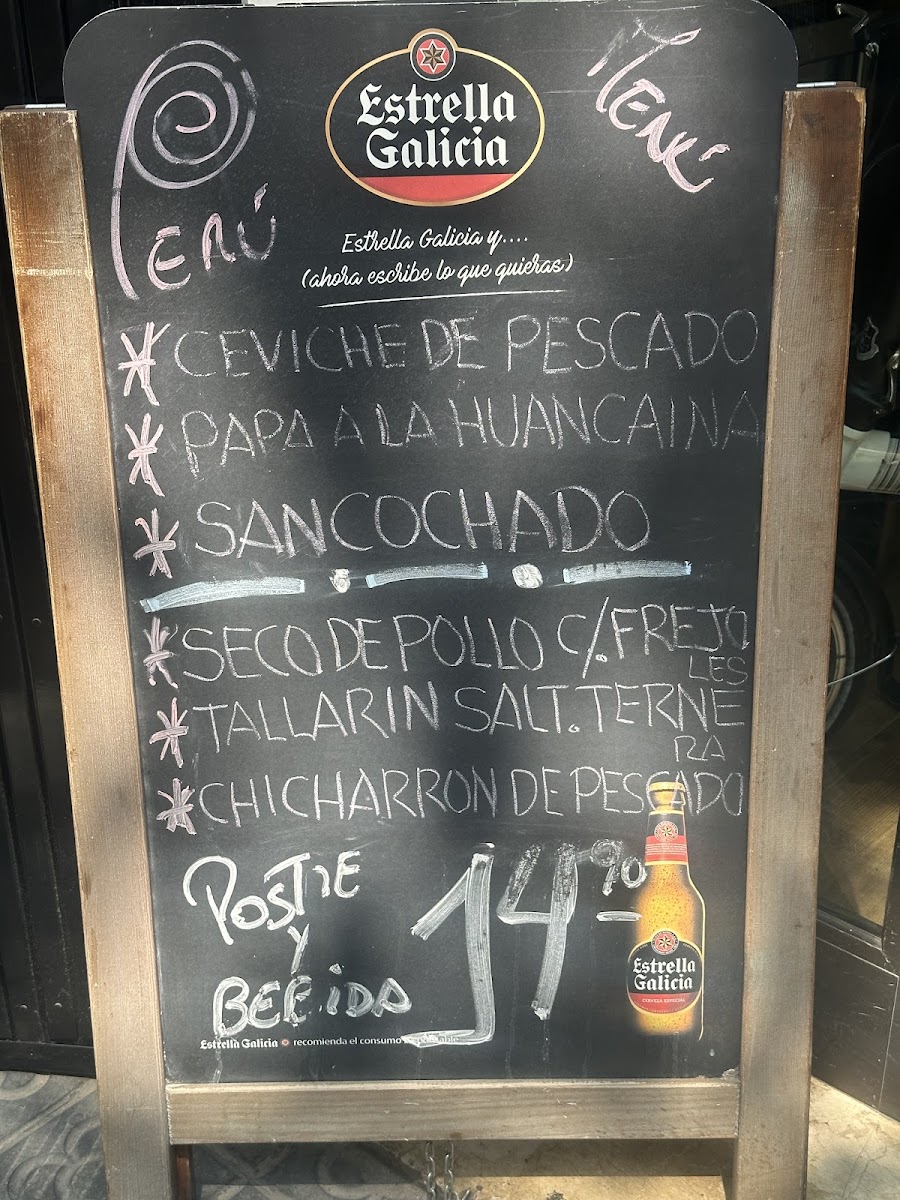 Estrella
Galicia
MENÚ
PERÚ
Estrella Galicia y....
(ahora escribe lo que quieras)
* CEVICHE DE PESCADO
* PAPA A LA HUANCAINA
* SANCOCHADO
* SECO DE POLLO C/. FREJO
LES
* TALLARIN SALT. TERNE
RA
* CHICHARRON DE PESCADO
POSTRE
Y
BEBIDA
14
Estrella
Galicia
CERVEZA ESPECIAL
Estrella Galicia recomienda el consumo